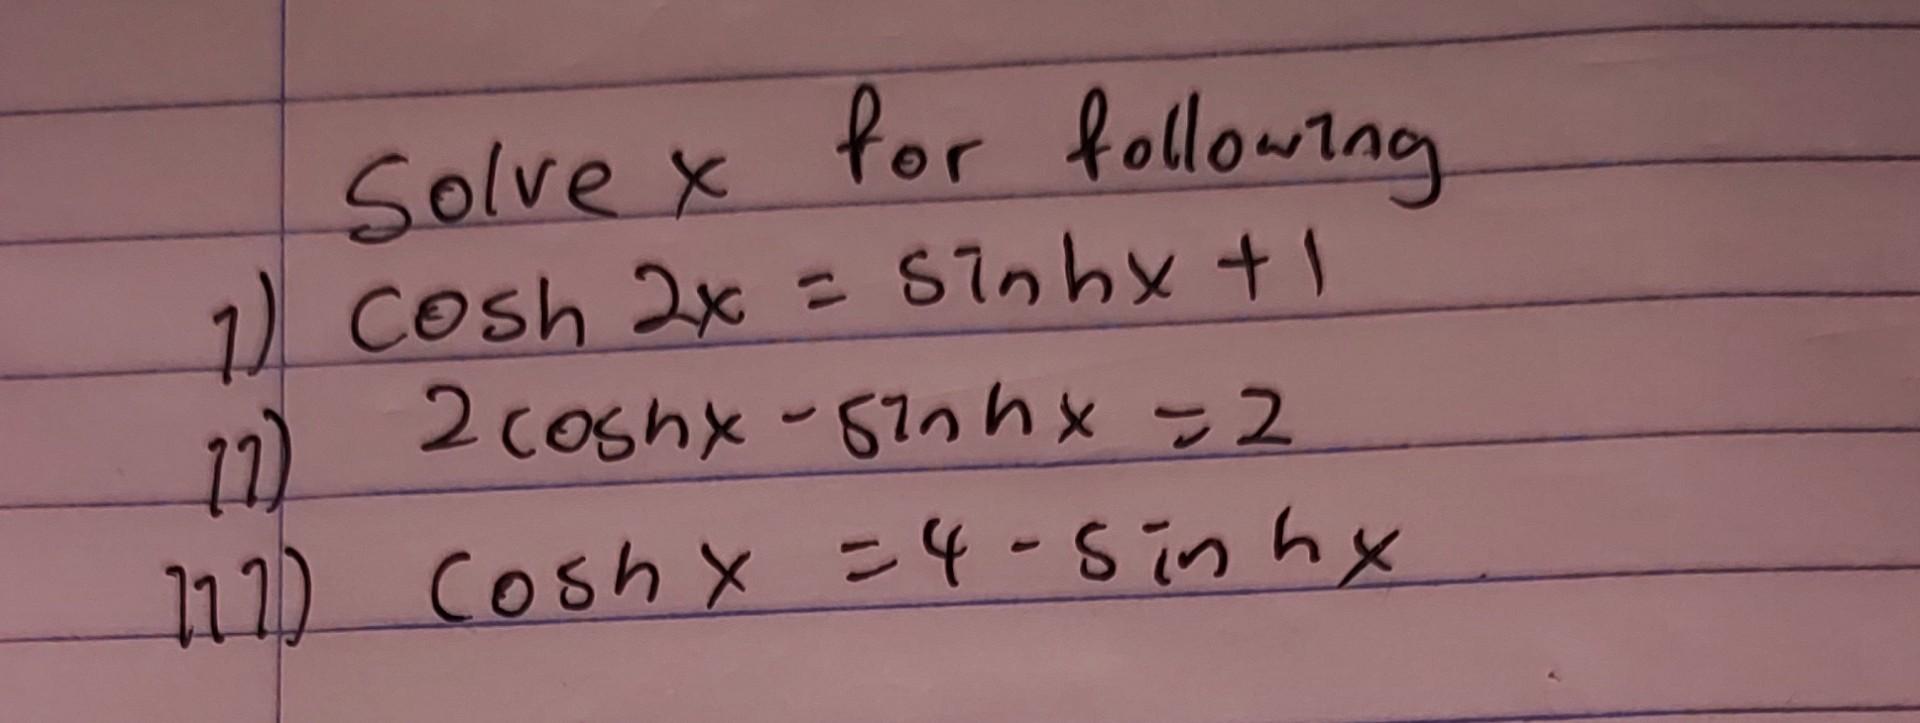 Solve x for following
i) cosh 2x = sinhx + 1
ii) 2coshx - sinhx = 2
iii) coshx = 4 - sinhx